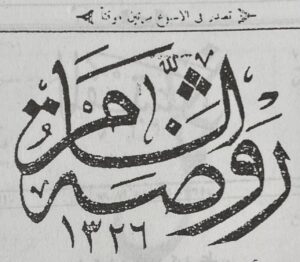 تصدر في الاسبوع مرتين موقتاً
روضة الشام
١٣٢٦